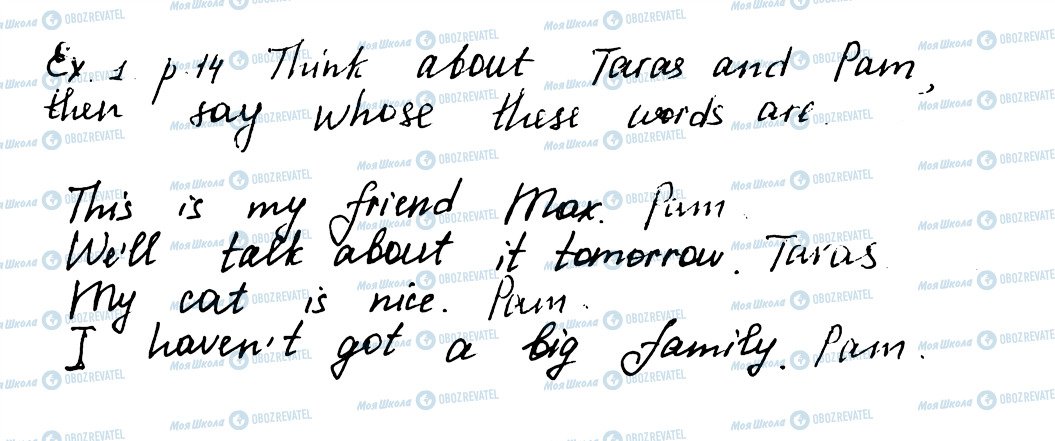 Ex. 1. p. 14 Think about Taras and Pam,
then say whose these words are.
This is my friend Max. Pam.
We'll talk about it tomorrow. Taras
My cat is nice. Pam.
I haven't got a big family. Pam.